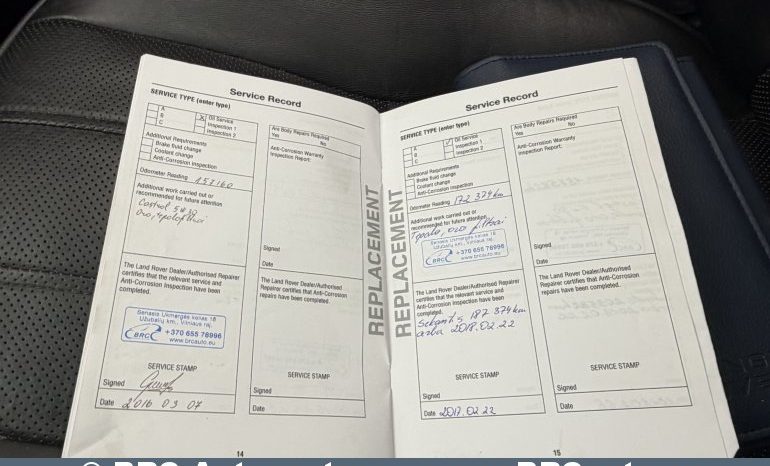 Service Record
SERVICE TYPE (enter type)
A
B
C
Oil Service
Inspection 1
Inspection 2
Additional Requirements
Brake fluid change
Coolant change
Anti-Corrosion Inspection
Odometer Reading 157160
Additional work carried out or
recommended for future attention
Castrol 5w30
Oro, tepalo filtrai
The Land Rover Dealer/Authorised Repairer
certifies that the relevant service and
Anti-Corrosion Inspection have been
completed.
Senasis Ukmergės kelias 18
Užubalių km., Vilniaus raj.
BRC +370 655 78996
www.brcauto.eu
SERVICE STAMP
Signed
Date 2016 09 07
Are Body Repairs Required
Yes No
Anti-Corrosion Warranty
Inspection Report:
Signed
Date
The Land Rover Dealer/Authorised
Repairer certifies that Anti-Corrosion
repairs have been completed.
SERVICE STAMP
Signed
Date
REPLACEMENT
14
Service Record
SERVICE TYPE (enter type)
A
B
C
Oil Service
Inspection 1
Inspection 2
Additional Requirements
Brake fluid change
Coolant change
Anti-Corrosion Inspection
Odometer Reading 172 374km
Additional work carried out or
recommended for future attention
Tepalo, oro filtrai
Senasis Ukmergės kelias 18
Užubalių km., Vilniaus raj.
BRC +370 655 78996
www.brcauto.eu
The Land Rover Dealer/Authorised Repairer
certifies that the relevant service and
Anti-Corrosion Inspection have been
completed.
187 374 km
arba 2018.02.22
SERVICE STAMP
Signed
Date 2017.02.22
Are Body Repairs Required
Yes No
Anti-Corrosion Warranty
Inspection Report:
Signed
Date
The Land Rover Dealer/Authorised
Repairer certifies that Anti-Corrosion
repairs have been completed.
SERVICE STAMP
Signed
Date
REPLACEMENT
15